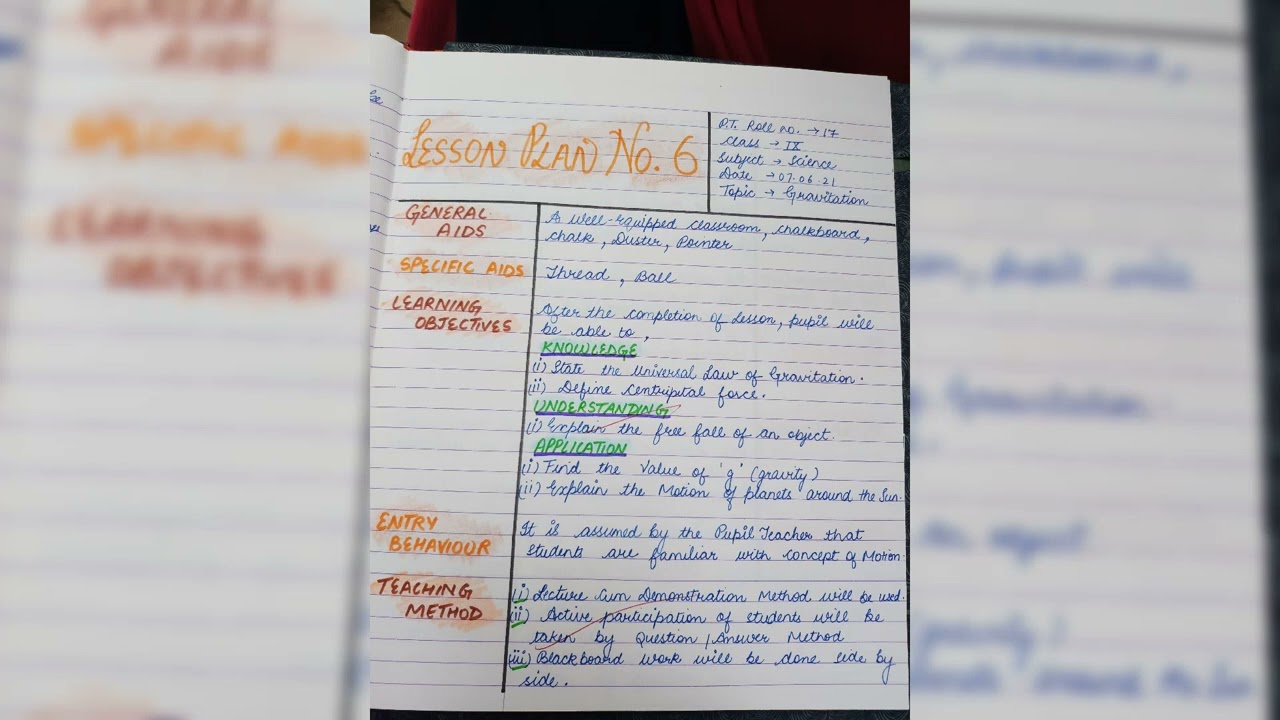 LESSON PLAN No. 6
P.T. Roll no. → 17
Class → IX
Subject → Science
Date → 07.06.21
Topic → Gravitation
GENERAL
AIDS
A well-equipped classroom, chalkboard,
chalk, Duster, Pointer
SPECIFIC AIDS
Thread, Ball
LEARNING
OBJECTIVES
After the completion of Lesson, pupil will
be able to,
KNOWLEDGE
(i) State the Universal Law of Gravitation.
(ii) Define Centripital force.
UNDERSTANDING
(i) Explain the free fall of an object.
APPLICATION
(i) Find the value of 'g' (gravity)
(ii) Explain the Motion of planets around the Sun.
ENTRY
BEHAVIOUR
It is assumed by the Pupil Teacher that
students are familiar with concept of Motion.
TEACHING
METHOD
(i) Lecture Cum Demonstration Method will be used.
(ii) Active participation of students will be
taken by Question / Answer Method
(iii) Blackboard work will be done side by
side.